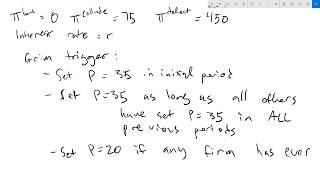 π^bert = 0 π^collude = 75 π^defect = 450
Interest rate = r
Grim trigger:
- Set P = 35 in initial period
- Set P = 35 as long as all others
have set P = 35 in ALL
previous periods
- Set P = 20 if any firm has ever